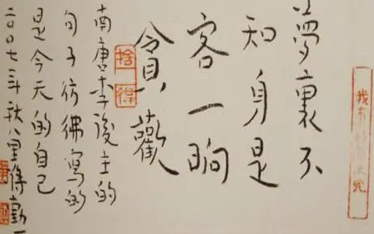 夢裏不
知身是
客一晌
貪歡
捨得
南唐李後主的
句子彷彿寫的
是今天的自己
二〇〇七年秋八里蔣勳